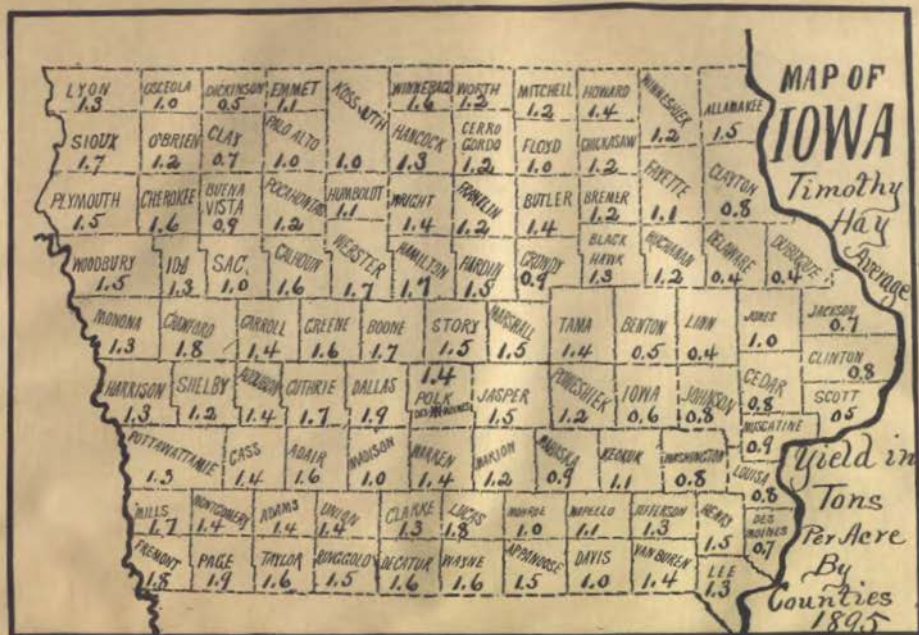 MAP OF
IOWA
Timothy
Hay
Average
Yield in
Tons
Per Acre
By
Counties
1895
LYON
1.3
OSCEOLA
1.0
DICKINSON
0.5
EMMET
1.1
KOSSUTH
1.0
WINNEBAGO
1.6
WORTH
1.2
MITCHELL
1.2
HOWARD
1.4
WINNESHIEK
1.2
ALLAMAKEE
1.5
SIOUX
1.7
O'BRIEN
1.2
CLAY
0.7
PALO ALTO
1.0
HANCOCK
1.3
CERRO
GORDO
1.2
FLOYD
1.0
CHICKASAW
1.2
FAYETTE
1.1
CLAYTON
0.8
PLYMOUTH
1.5
CHEROKEE
1.6
BUENA
VISTA
0.9
POCAHONTAS
1.2
HUMBOLDT
1.1
WRIGHT
1.4
FRANKLIN
1.2
BUTLER
1.4
BREMER
1.2
WOODBURY
1.5
IDA
1.3
SAC
1.0
CALHOUN
1.6
WEBSTER
1.7
HAMILTON
1.7
HARDIN
1.5
GRUNDY
0.9
BLACK
HAWK
1.3
BUCHANAN
1.2
DELAWARE
0.4
DUBUQUE
0.4
MONONA
1.3
CRAWFORD
1.8
CARROLL
1.4
GREENE
1.6
BOONE
1.7
STORY
1.5
MARSHALL
1.5
TAMA
1.4
BENTON
0.5
LINN
0.4
JONES
1.0
JACKSON
0.7
CLINTON
0.8
HARRISON
1.3
SHELBY
1.2
AUDUBON
1.4
GUTHRIE
1.7
DALLAS
1.9
1.4
POLK
DES MOINES
JASPER
1.5
POWESHIEK
1.2
IOWA
0.6
JOHNSON
0.8
CEDAR
0.8
SCOTT
0.5
MUSCATINE
0.9
POTTAWATTAMIE
1.3
CASS
1.4
ADAIR
1.6
MADISON
1.0
WARREN
1.4
MARION
1.2
MAHASKA
0.9
KEOKUK
1.1
WASHINGTON
0.8
LOUISA
0.8
MILLS
1.7
MONTGOMERY
1.4
ADAMS
1.4
UNION
1.4
CLARKE
1.3
LUCAS
1.8
MONROE
1.0
WAPELLO
1.1
JEFFERSON
1.3
HENRY
1.5
DES
MOINES
0.7
FREMONT
1.8
PAGE
1.9
TAYLOR
1.6
RINGGOLD
1.5
DECATUR
1.6
WAYNE
1.6
APPANOOSE
1.5
DAVIS
1.0
VAN BUREN
1.4
LEE
1.3